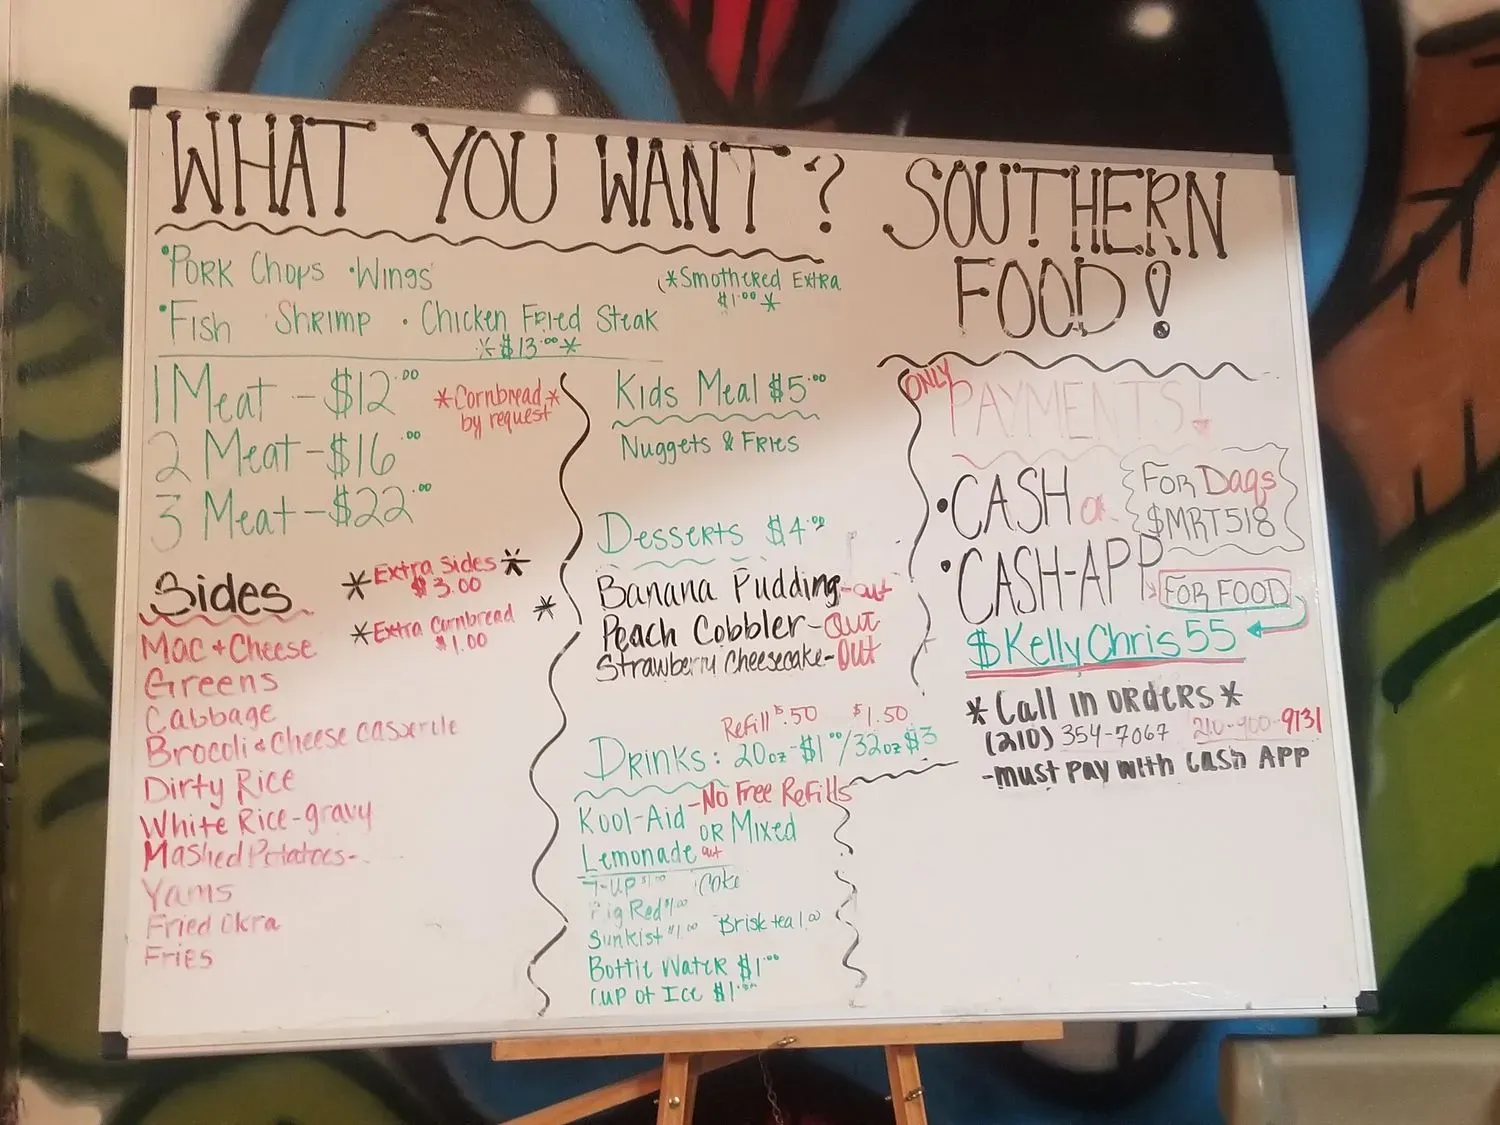 WHAT YOU WANT? SOUTHERN
FOOD!
•Pork Chops •Wings
*Smothered Extra
$1.00*
•Fish Shrimp • Chicken Fried Steak
*$13.00*
1 Meat - $12.00
2 Meat - $16.00
3 Meat - $22.00
*Cornbread*
by request
Sides
*Extra Sides*
$3.00
*Extra Cornbread*
$1.00
Mac + Cheese
Greens
Cabbage
Brocoli & Cheese casserole
Dirty Rice
White Rice-gravy
Mashed Potatoes-
Yams
Fried Okra
Fries
Kids Meal $5.00
Nuggets & Fries
Desserts $4.00
Banana Pudding-out
Peach Cobbler-Out
Strawberry Cheesecake-Out
Refill $.50 $1.50
Drinks: 20oz-$1.00/32oz $3
Kool-Aid -No Free Refills
or Mixed
Lemonade out
7-UP $1.00 Coke
Big Red $1.00
Sunkist $1.00 Brisk tea 1.00
Bottle Water $1.00
Cup of Ice $1.00
ONLY PAYMENTS!
•CASH or
For Daqs
$MRT518
•CASH-APP
FOR FOOD
$KellyChris55
*Call in orders*
(210) 354-7067 210-900-9131
-must pay with Cash App